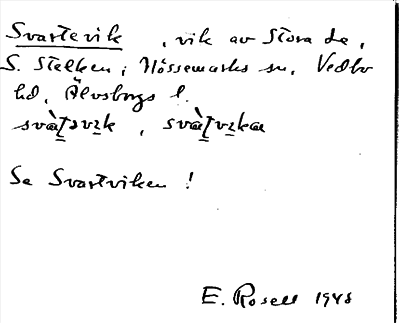 Svartevik, vik av Stora Le,
S. Stelken i Nössemarks sn, Vedbo
hd, Älvsborgs l.
Se Svartviken!
E. Rosell 1948